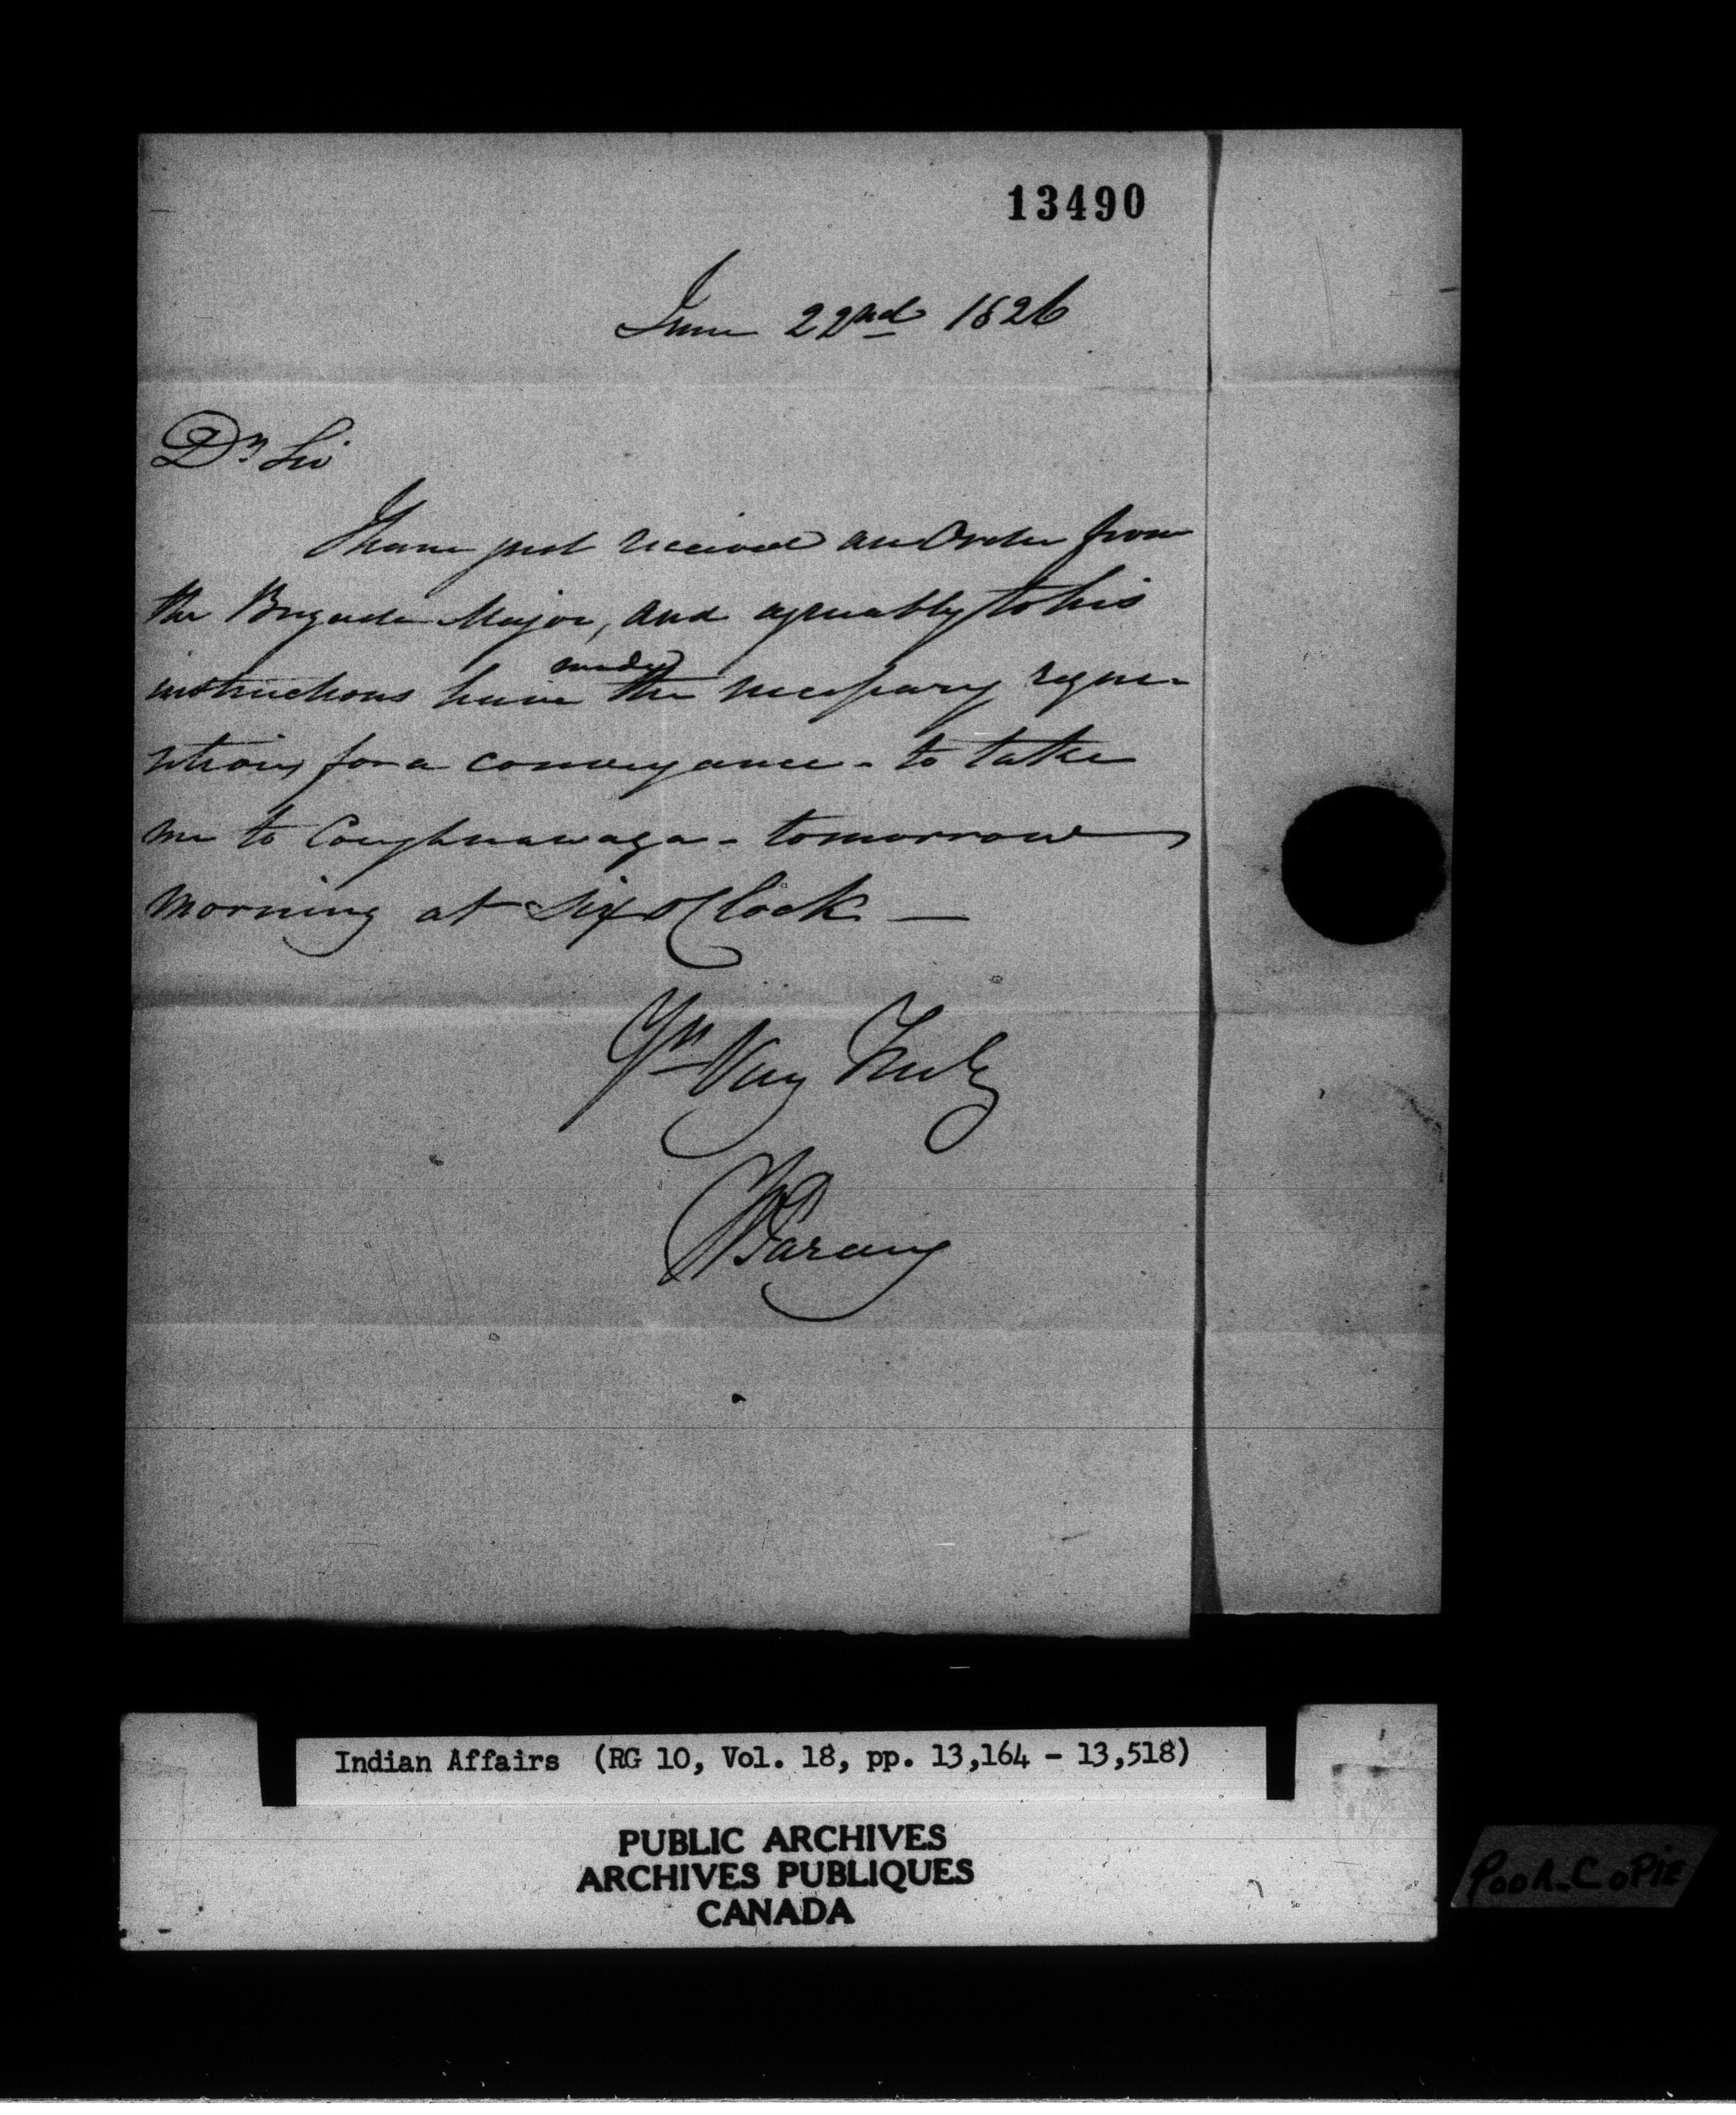 13490
June 22nd 1826
Dr Sir
I have just received an Order from
the Brigade Major, and agreeably to his
made
instructions have the necessary requi-
sition for a conveyance - to take
me to Coughnawaga - tomorrow
morning at six o'Clock —
Yrs Very Truly
Indian Affairs (RG 10, Vol. 18, pp. 13,164 - 13,518)
PUBLIC ARCHIVES
ARCHIVES PUBLIQUES
CANADA
POOR-COPIE